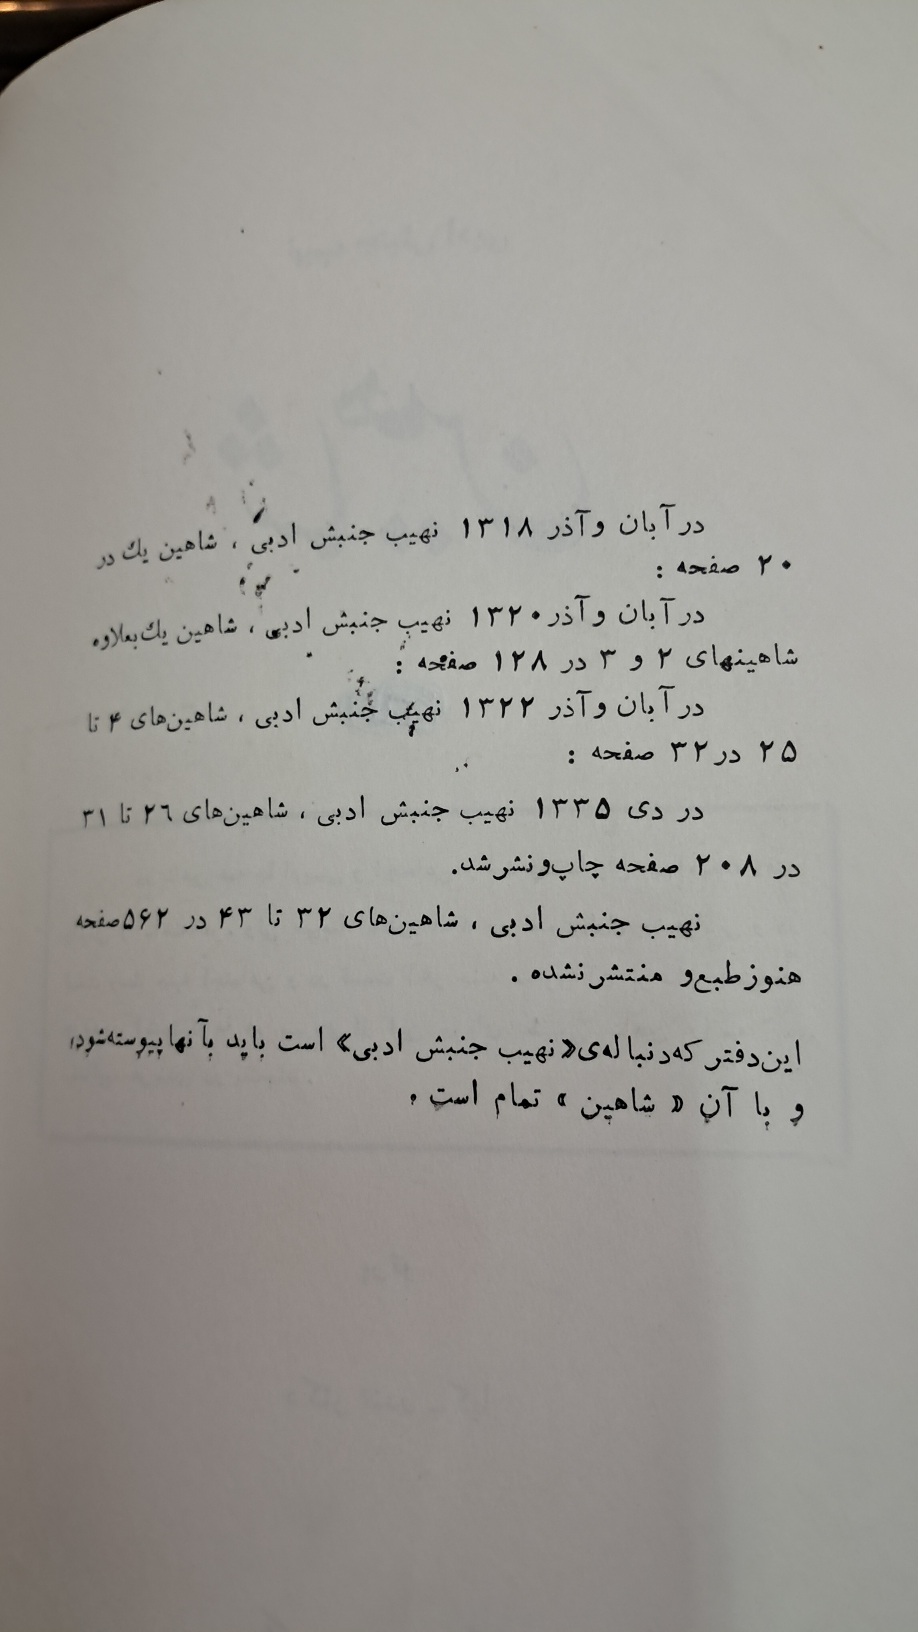 در آبان و آذر ۱۳۱۸ نهیب جنبش ادبی ، شاهین یك در
۲۰ صفحه :
در آبان و آذر ۱۳۲۰ نهیب جنبش ادبی ، شاهین یك بعلاوه
شاهینهای ۲ و ۳ در ۱۲۸ صفحه :
در آبان و آذر ۱۳۲۲ نهیب جنبش ادبی ، شاهین‌های ۴ تا
۲۵ در ۳۲ صفحه :
در دی ۱۳۳۵ نهیب جنبش ادبی ، شاهین‌های ۲۶ تا ۳۱
در ۲۰۸ صفحه چاپ و نشر شد.
نهیب جنبش ادبی ، شاهین‌های ۳۲ تا ۴۳ در ۵۶۲ صفحه
هنوز طبع و منتشر نشده .
این دفتر که دنباله‌ی «نهیب جنبش ادبی» است باید بآنها پیوسته شود،
و با آن « شاهین » تمام است .